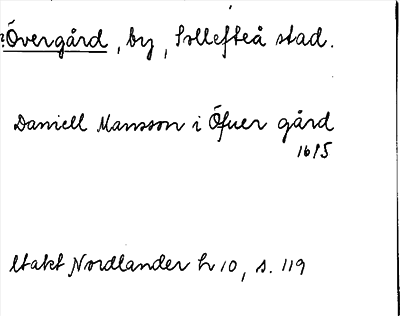 Övergård, by, Sollefteå stad.
Daniell Mansson i Öfuer gård
1615
Utakt Nordlander h 10, s. 119